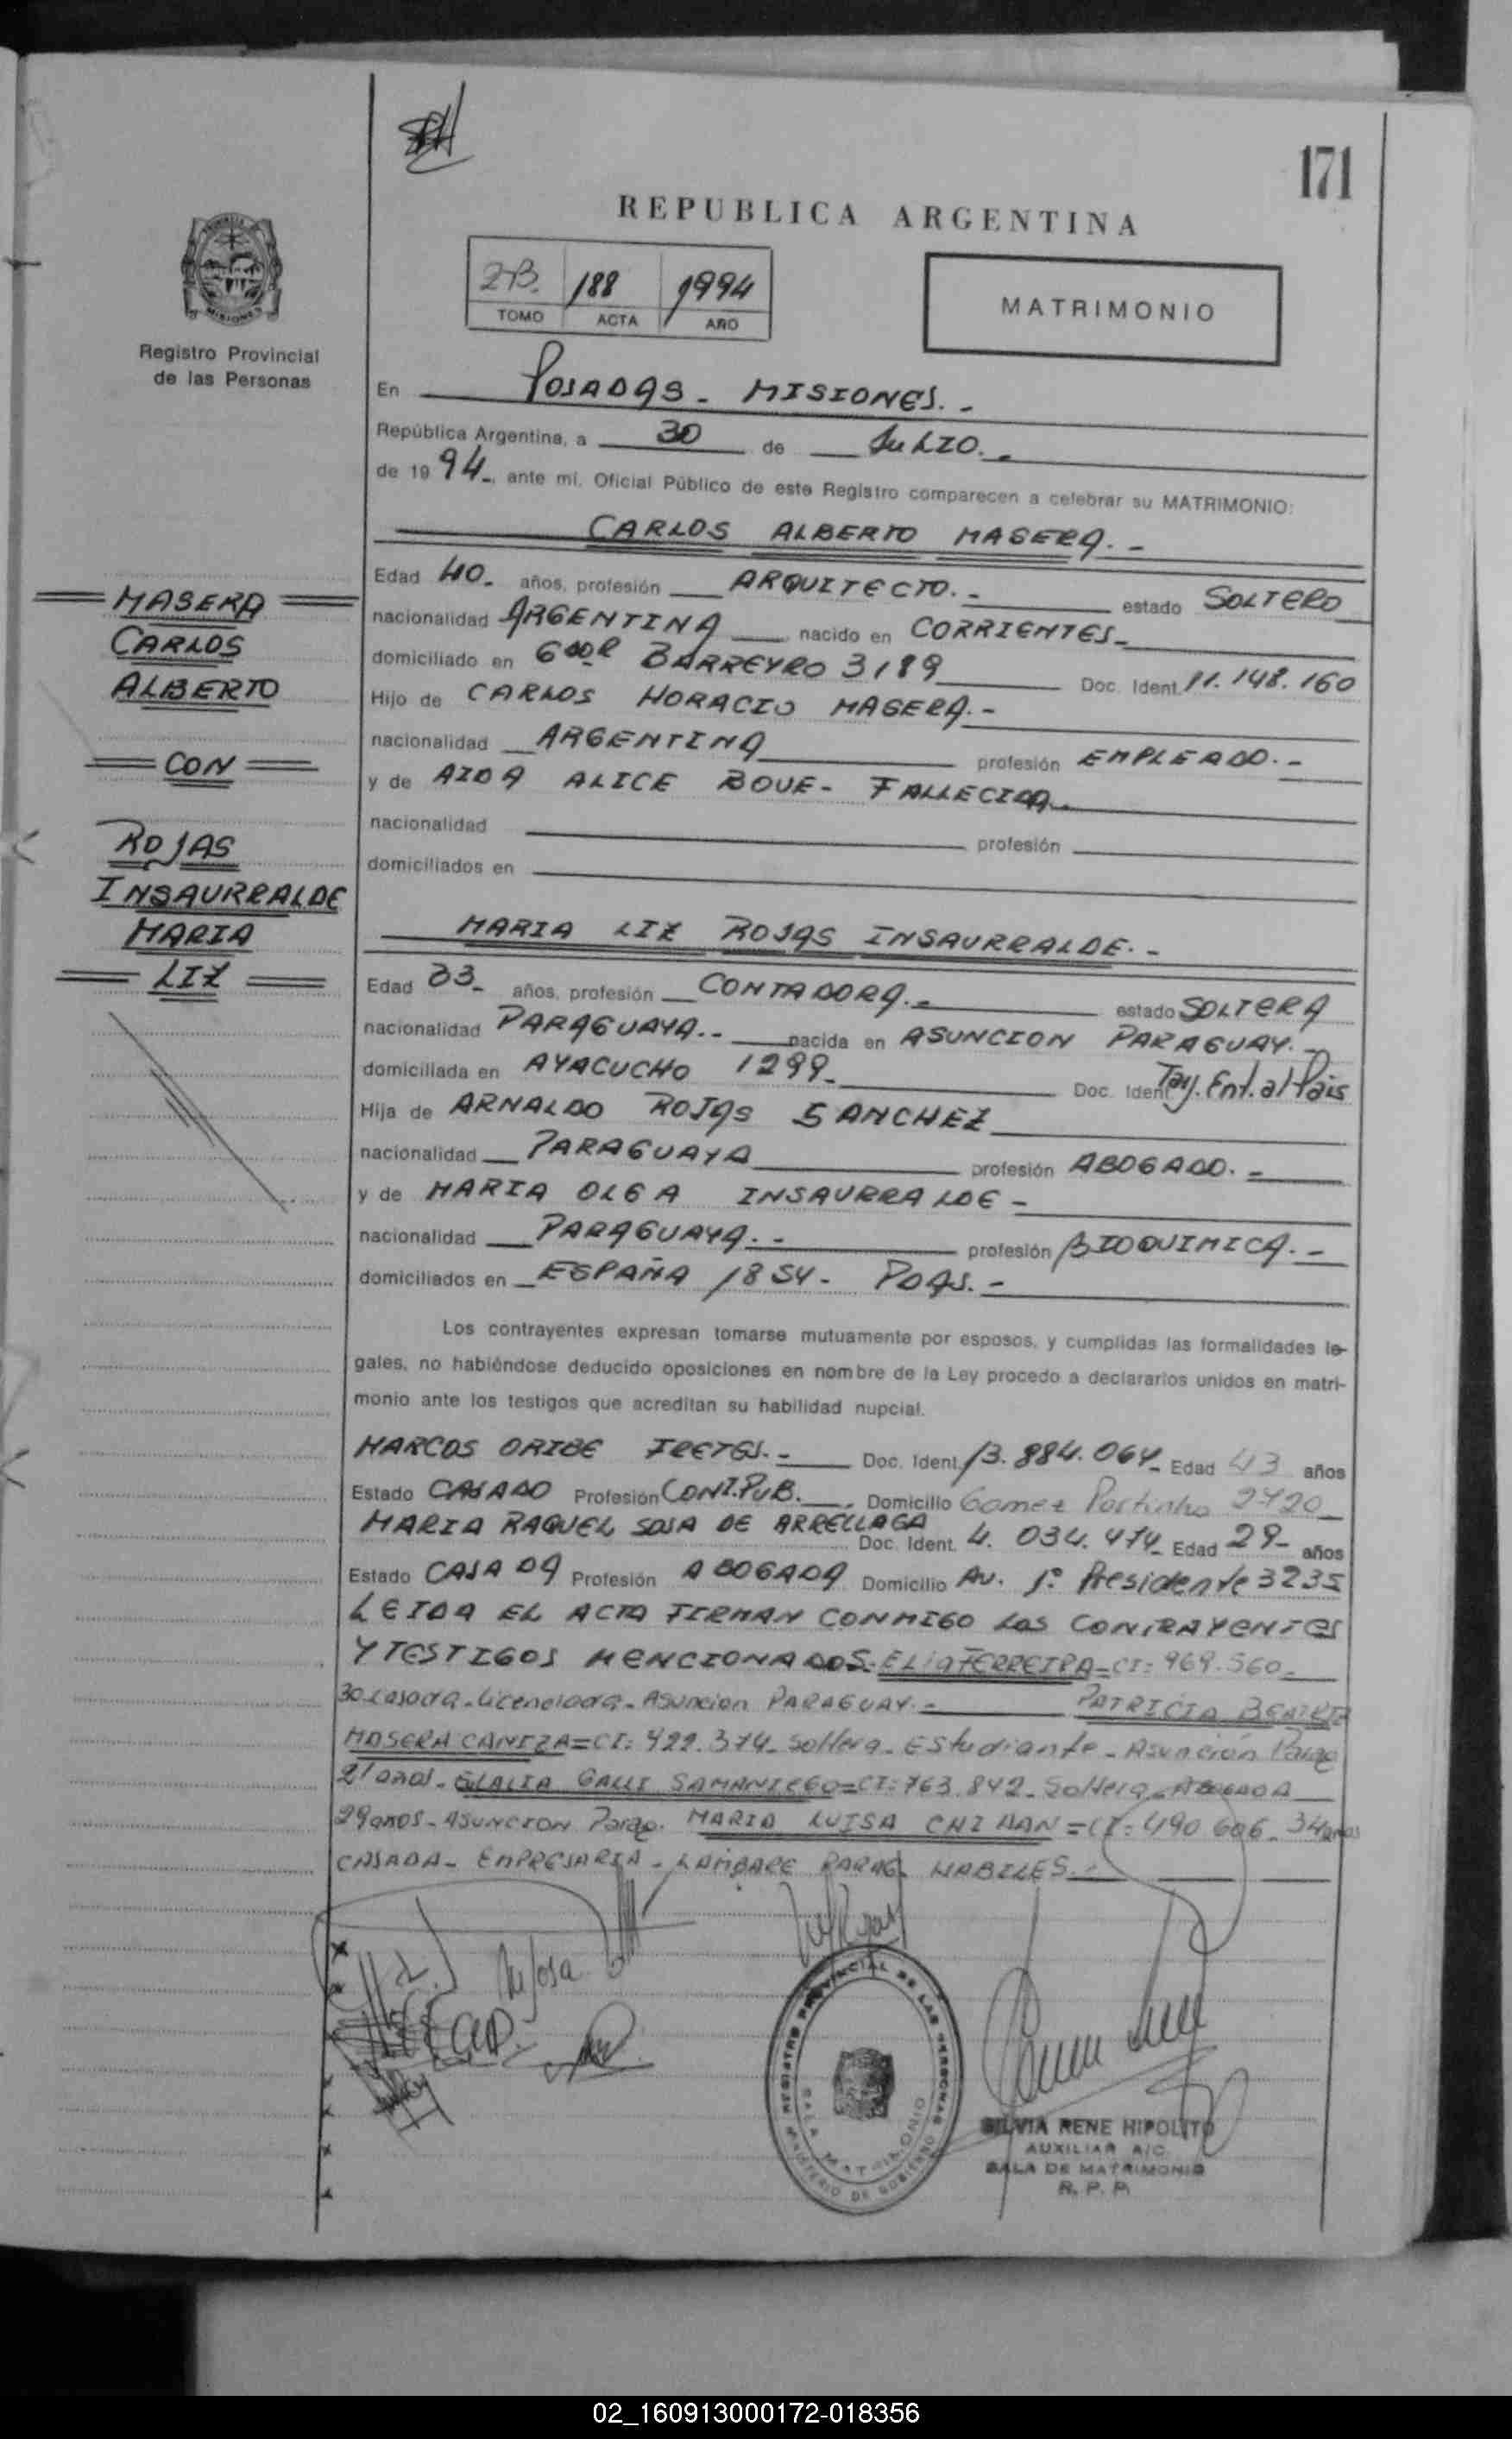 171
REPUBLICA ARGENTINA
2-B. 188 1994
TOMO ACTA AÑO
MATRIMONIO
Registro Provincial
de las Personas
En POSADAS - MISIONES.-
República Argentina, a 30 de JULIO.-
de 19 94-, ante mí, Oficial Público de este Registro comparecen a celebrar su MATRIMONIO:
CARLOS ALBERTO MASERA.-
Edad 40- años, profesión ARQUITECTO.- estado SOLTERO
nacionalidad ARGENTINA nacido en CORRIENTES-
domiciliado en BARREYRO 3189 Doc. Ident. 11.148.160
Hijo de CARLOS HORACIO MASERA.-
nacionalidad ARGENTINA profesión EMPLEADO.-
y de AIDA ALICE BOUE- FALLECIDA-
nacionalidad profesión
domiciliados en
MASERA
CARLOS
ALBERTO
CON
ROJAS
INSAURRALDE
MARIA
LIZ
MARIA LIZ ROJAS INSAURRALDE.-
Edad 33- años, profesión CONTADORA.- estado SOLTERA
nacionalidad PARAGUAYA.- nacida en ASUNCION PARAGUAY.-
domiciliada en AYACUCHO 1299- Doc. Ident. Ent. al Pais
Hija de ARNALDO ROJAS SANCHEZ
nacionalidad PARAGUAYA profesión ABOGADO.-
y de MARIA OLGA INSAURRALDE-
nacionalidad PARAGUAYA.- profesión BIOQUIMICA.-
domiciliados en ESPAÑA 1854- PDAS.-
Los contrayentes expresan tomarse mutuamente por esposos, y cumplidas las formalidades le-
gales, no habiéndose deducido oposiciones en nombre de la Ley procedo a declararlos unidos en matri-
monio ante los testigos que acreditan su habilidad nupcial.
MARCOS ORIBE FRETES.- Doc. Ident. 13.884.064- Edad 43 años
Estado CASADO Profesión CONT.PUB. Domicilio Gomez Portinho 2420
MARIA RAQUEL SOSA DE ARRELLAGA Doc. Ident. 4.034.474- Edad 29- años
Estado CASADA Profesión ABOGADA Domicilio Av. 1º Presidente 3235
LEIDA EL ACTA FIRMAN CONMIGO LOS CONTRAYENTES
Y TESTIGOS MENCIONADOS. ELIA FERREIRA=CI= 969.560-
30 casada-Licenciada- Asuncion PARAGUAY.- PATRICIA BEATRIZ
MASERA CANIZA=CI: 422.374- soltera- Estudiante- Asunción Parag
21 años- EULALIA GALLI SAMANIEGO=CI:763.842- Soltera- ABOGADA
29 años- ASUNCION Parag. MARIA LUISA =CI:490 606- 34 años
CASADA- EMPRESARIA- LAMBARE PARAG. HABILES.-
REGISTRO PROVINCIAL DE LAS PERSONAS
SALA MATRIMONIO
MINISTERIO DE GOBIERNO
SILVIA RENE HIPOLITO
AUXILIAR A/C
SALA DE MATRIMONIO
R. P. P.
02_160913000172-018356